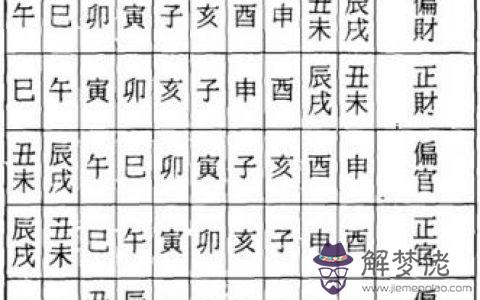 午 巳 卯 寅 子 亥 酉 申 丑未 辰戌 偏財
巳 午 寅 卯 亥 子 申 酉 辰戌 丑未 正財
丑未 辰戌 午 巳 卯 寅 子 亥 酉 申 偏官
辰戌 丑未 巳 午 寅 卯 亥 子 申 酉 正官
丑 辰
解梦佬